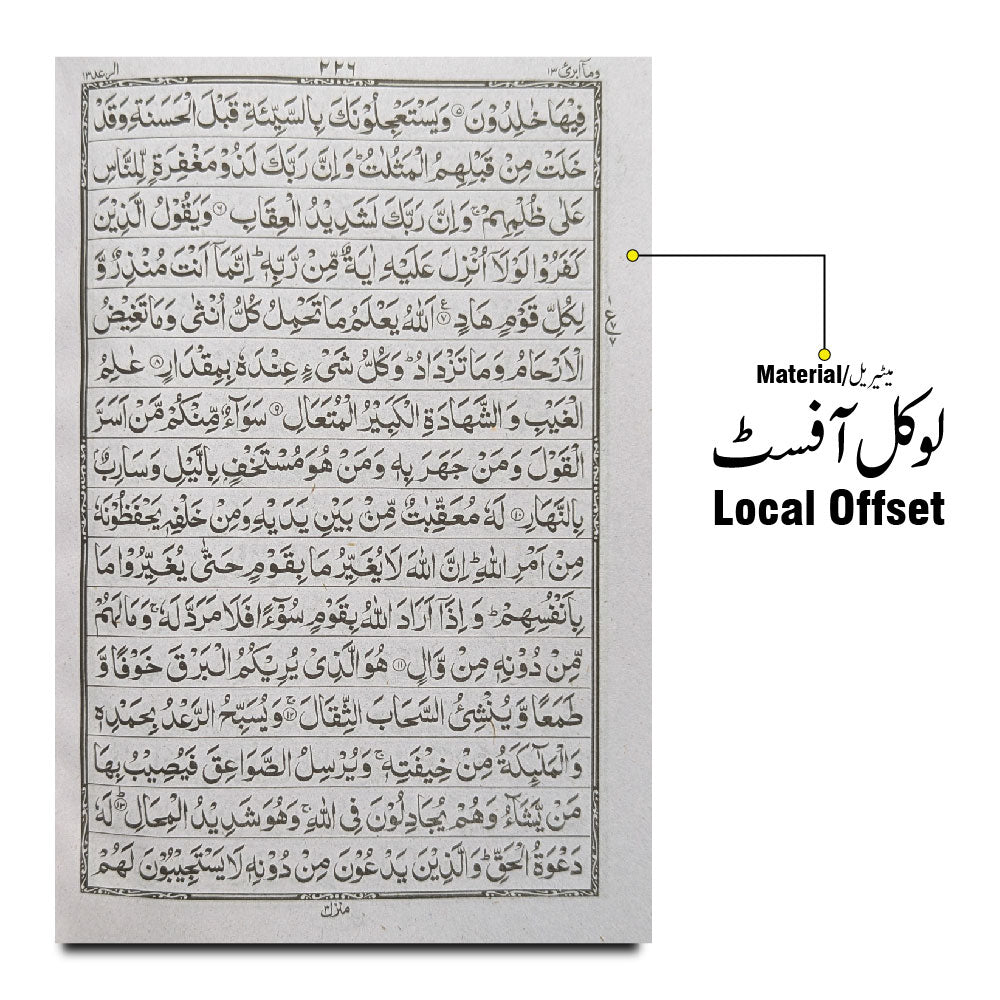 وما ابرئ ١٣ ٢٢٦ الرعد ١٣
فِيْهَا خٰلِدُوْنَ ﴿۵﴾ وَيَسْتَعْجِلُوْنَكَ بِالسَّيِّئَةِ قَبْلَ الْحَسَنَةِ وَقَدْ
خَلَتْ مِنْ قَبْلِهِمُ الْمَثُلٰتُ ؕ وَاِنَّ رَبَّكَ لَذُوْ مَغْفِرَةٍ لِّلنَّاسِ
عَلٰى ظُلْمِهِمْ ۚ وَاِنَّ رَبَّكَ لَشَدِيْدُ الْعِقَابِ ﴿۶﴾ وَيَقُوْلُ الَّذِيْنَ
كَفَرُوْا لَوْلَاۤ اُنْزِلَ عَلَيْهِ اٰيَةٌ مِّنْ رَّبِّهٖ ؕ اِنَّمَاۤ اَنْتَ مُنْذِرٌ وَّ
لِكُلِّ قَوْمٍ هَادٍ ﴿۷﴾ اَللّٰهُ يَعْلَمُ مَا تَحْمِلُ كُلُّ اُنْثٰى وَمَا تَغِيْضُ
الْاَرْحَامُ وَمَا تَزْدَادُ ؕ وَكُلُّ شَىْءٍ عِنْدَهٗ بِمِقْدَارٍ ﴿۸﴾ عٰلِمُ
الْغَيْبِ وَالشَّهَادَةِ الْكَبِيْرُ الْمُتَعَالِ ﴿۹﴾ سَوَآءٌ مِّنْكُمْ مَّنْ اَسَرَّ
الْقَوْلَ وَمَنْ جَهَرَ بِهٖ وَمَنْ هُوَ مُسْتَخْفٍۭ بِالَّيْلِ وَسَارِبٌۢ
بِالنَّهَارِ ﴿۱۰﴾ لَهٗ مُعَقِّبٰتٌ مِّنْۢ بَيْنِ يَدَيْهِ وَمِنْ خَلْفِهٖ يَحْفَظُوْنَهٗ
مِنْ اَمْرِ اللّٰهِ ؕ اِنَّ اللّٰهَ لَا يُغَيِّرُ مَا بِقَوْمٍ حَتّٰى يُغَيِّرُوْا مَا
بِاَنْفُسِهِمْ ؕ وَاِذَاۤ اَرَادَ اللّٰهُ بِقَوْمٍ سُوْٓءًا فَلَا مَرَدَّ لَهٗ ۚ وَمَا لَهُمْ
مِّنْ دُوْنِهٖ مِنْ وَّالٍ ﴿۱۱﴾ هُوَ الَّذِىْ يُرِيْكُمُ الْبَرْقَ خَوْفًا وَّ
طَمَعًا وَّيُنْشِئُ السَّحَابَ الثِّقَالَ ﴿۱۲﴾ وَيُسَبِّحُ الرَّعْدُ بِحَمْدِهٖ
وَالْمَلٰٓئِكَةُ مِنْ خِيْفَتِهٖ ۚ وَيُرْسِلُ الصَّوَاعِقَ فَيُصِيْبُ بِهَا
مَنْ يَّشَآءُ وَهُمْ يُجَادِلُوْنَ فِى اللّٰهِ ۚ وَهُوَ شَدِيْدُ الْمِحَالِ ﴿۱۳﴾ لَهٗ
دَعْوَةُ الْحَقِّ ؕ وَالَّذِيْنَ يَدْعُوْنَ مِنْ دُوْنِهٖ لَا يَسْتَجِيْبُوْنَ لَهُمْ
منزل ٣
Material/میٹیریل
لوکل آفسٹ
Local Offset